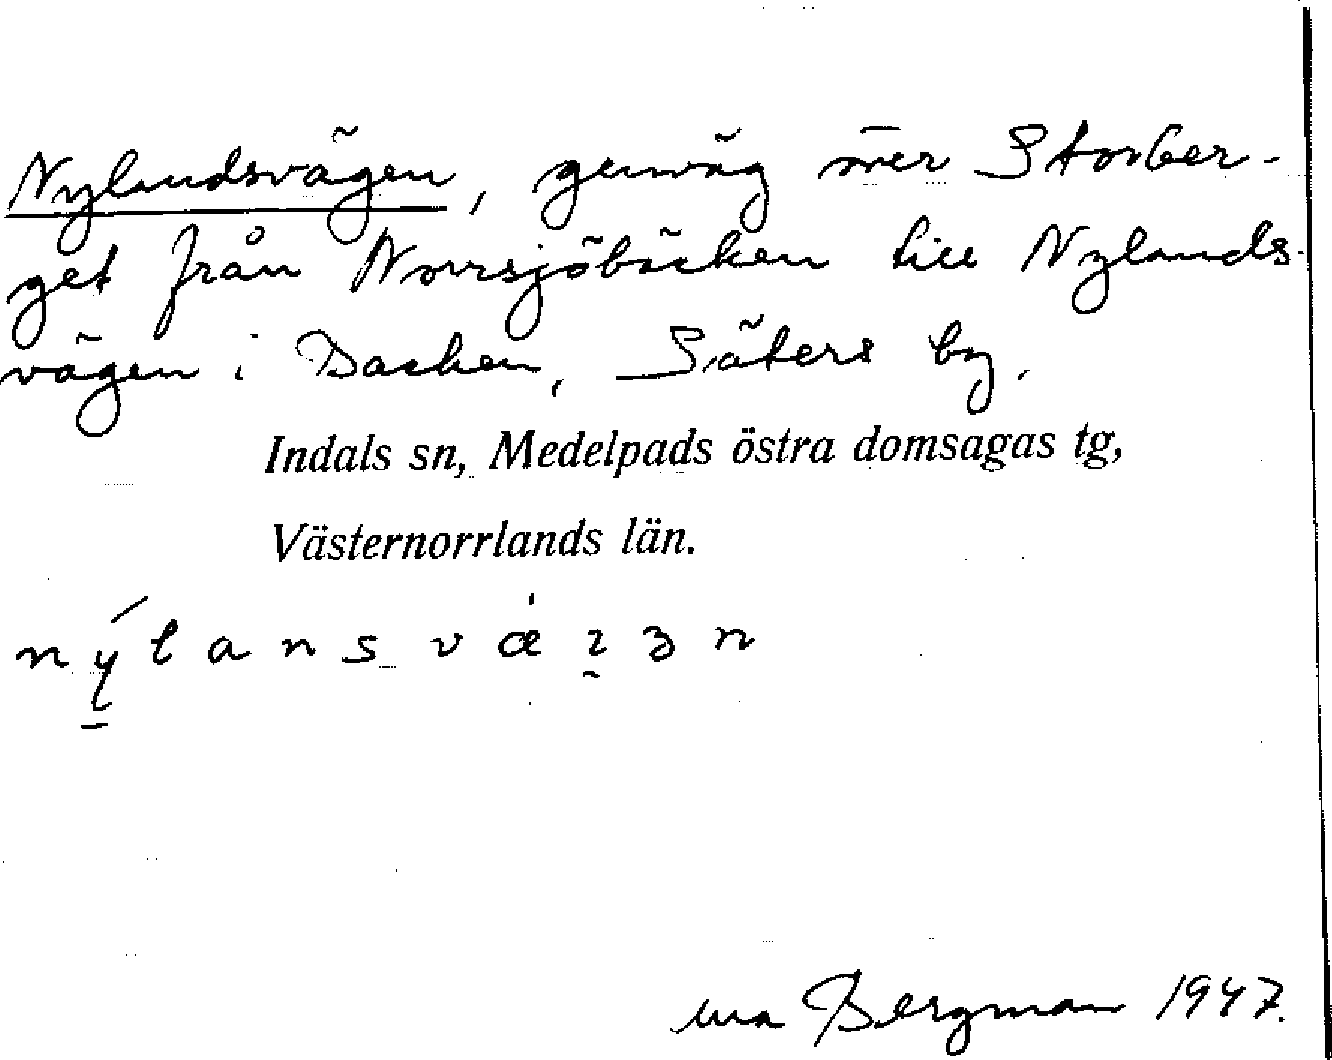 Nylandsvägen, genväg över Storber-
get från Norrsjöbäcken till Nylands-
vägen i Backen, Säters by.
Indals sn, Medelpads östra domsagas tg,
Västernorrlands län.
Bergman 1947.